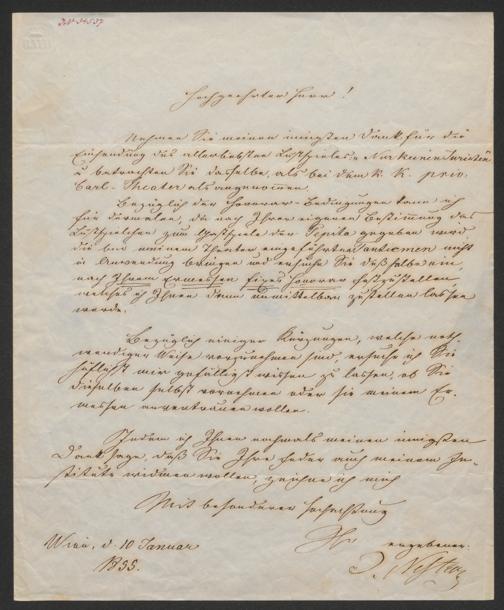 Hochgeehrter Herr!
Nehmen Sie meinen innigsten Dank für die
Einsendung des allerliebsten Lustspieles „Nur keine Juristen“
u betrachten Sie dasselbe, als bei dem k. k. priv.
Carl-Theater als angenommen.
Bezüglich der Honorar-Bedingungen kann ich
für dermalen, da nach Ihrer eigenen Bestimmung das
Lustspielchen zum Gastspiele der Pepita gegeben wird,
die bei meinem Theater eingeführten Tantiemen nicht
in Anwendung bringen und ersuche Sie deßhalb ein,
nach Ihrem Ermessen fixes Honorar festzustellen
welches ich Ihnen dann unmittelbar zustellen lassen
werde.
Bezüglich einiger Kürzungen, welche noth-
wendiger Weise vorzunehmen sind, ersuche ich Sie
höflichst mir gefälligst wissen zu lassen, ob Sie
dieselben selbst vornehmen oder sie meinem Er-
messen anvertrauen wollen.
Indem ich Ihnen nochmals meinen innigsten
Dank sage, daß Sie Ihre Feder auch meinem In-
stitute widmen wollen, zeichne ich mich
Mit besonderer Hochachtung
Ihr ergebener
Wien, d. 10 Januar
1855.
J. Nestroy